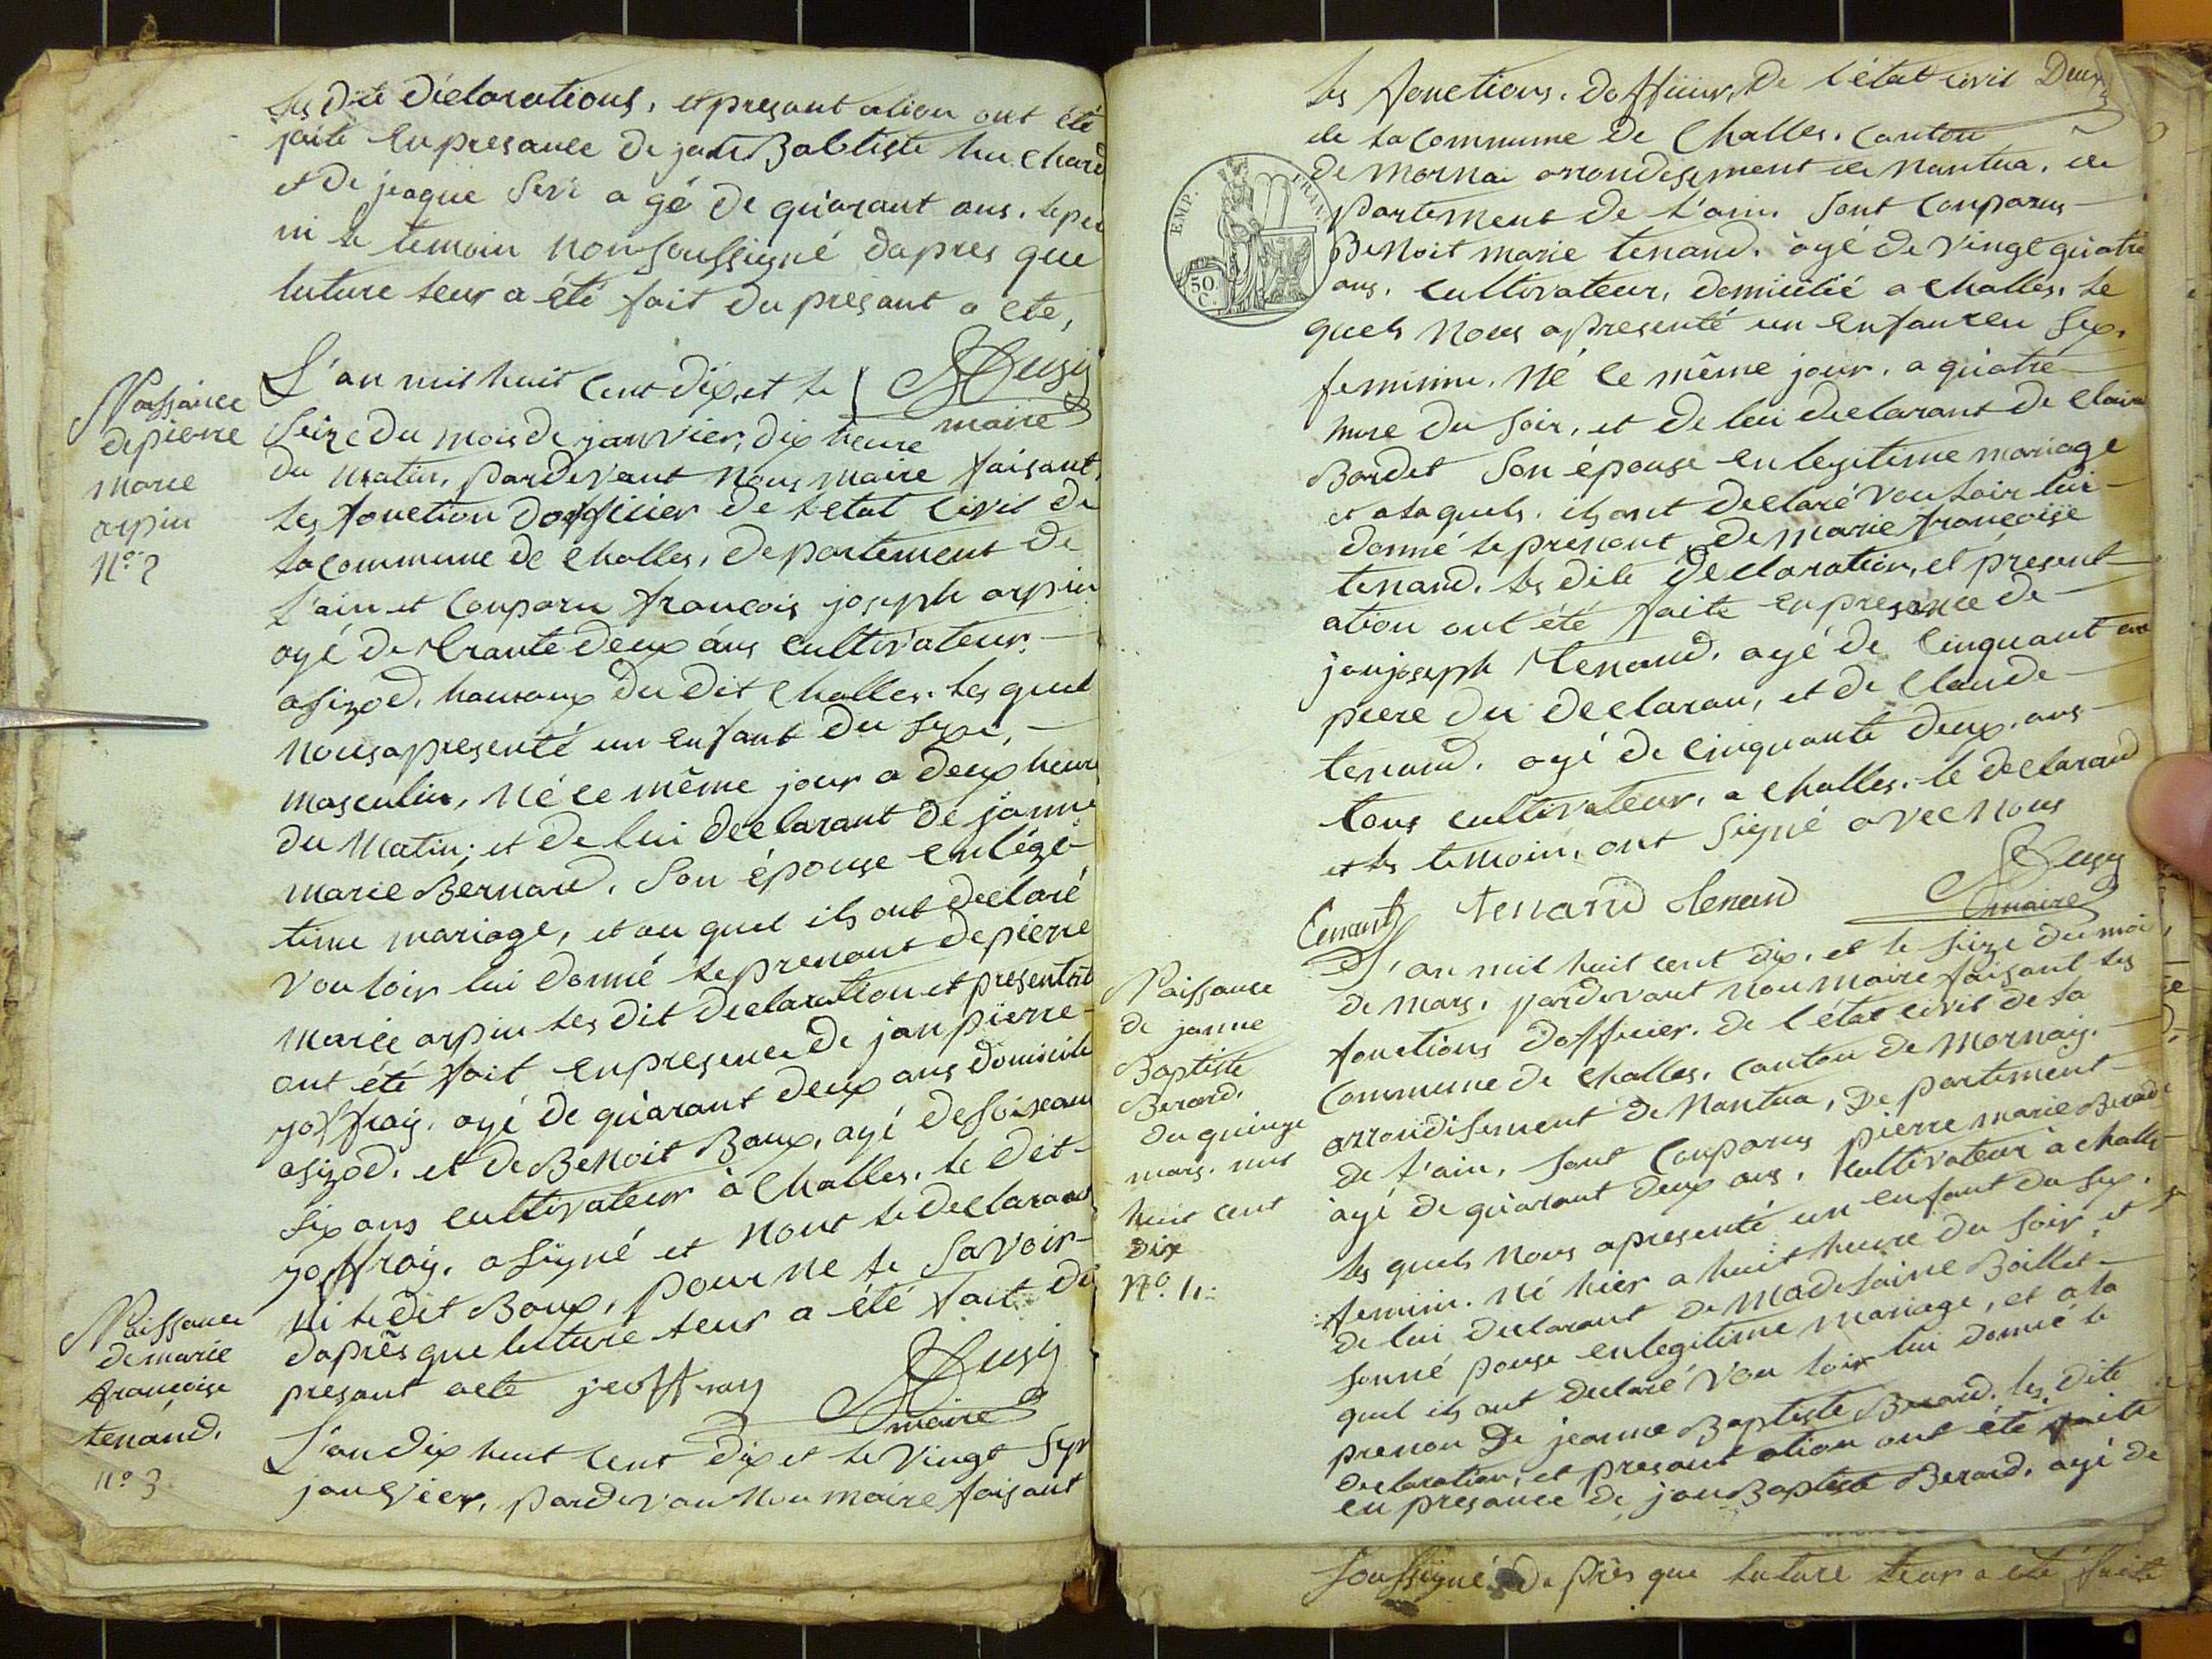 les dite déclarations, et presant ation ont été
faite en presance de jan Babtiste
et de jaque a gé de quarant ans. le per
ni le temoin non soussigné dapres que
luture leur a été fait du presant a cte,
Naissance
de pierre
marie
arpin
N.º 2
L'an mil huit cent dix, et le
maire
seize du mois de janvier, dix heure
du matin, pardevant nous maire faisant
les fonction dofficier de letat civil de
la commune de Challes, departement de
L'ain et comparu françois joseph arpin
agé de trante deux ans cultivateur
a sizod, hamaux du dit Challes. les quel
nous a presenté un enfant du sexe,
masculin, Né ce même jour a deux heure
du Matin; et de lui declarant de janne
marie Bernard. son épouse en légi-
time mariage, et au quel ils ont declaré
vouloir lui donné le prenont de pierre
marie arpin les dit declaration et presentat
ont été fait en presence de jan pierre
joffray, agé de quarant deux ans domicile
a sizod. et de Benoit Baux, agé de soixeant
six ans cultivateur à Challes. le dit
joffray, a signé et nont le declarant
ni le dit Baux, pour ne le savoir
daprês que luture leur a été fait du
presant acte jeoffray
maire
Naissance
de marie
françoise
tenand.
n.º 3
L'an dix huit cent dix et le vingt sept
janvier, pardevan nou maire faisant
les fonctions. dofficier, de l'état civil Deux
de la commune de Challes. Canton
de Mornai arrondissement de Nantua. de
partement de L'ain. sont comparus
EMP. FRAN.
50 C.
Benoit marie tenand. agé de vingt quatre
ans. cultivateur, domicilié a Challes. le
quels nous a presenté un enfant eu sex.
feminin. Né ce même jour. a quatre
heure du soir, et de lui declarant de claire
Bordet son épouse en legitime mariage
et a la quels. ils ont declaré vouloir lui
donné le prenont de marie françoise
tenand. les dite declaration, et présent
ation ont été faite en presence de
jan joseph tenand. agé de cinquant
pere du declaran, et de Claude
tenand. agé de cinquante deux. ans
tous cultivateur, a Challes. le declarand
et les temoin, ont signé avec nous
tenand tenand
maire
Naissance
de janne
Baptiste
Berard.
du quinze
mars. mil
huit cent
dix
N.º 4
L'an mil huit cent dix, et le seize du moi
de mars, pardevant nou maire faisant les
fonctions dofficier. de l'état civil de la
commune de Challes, canton de Mornay.
arrondisement de Nantua, De partement
de l'ain, sont comparus pierre marie Berard
agé de quarant deux ans, cultivateur à Challe
les quels nous a presenté un enfant du sex.
feminin. Né hier a huit heure du soir, et
de lui declarant de Madelaine Baillet
sonné pouse en legitime mariage, et a la
quel ils ont declaré vou loir lui donné le
prenon De jeanne Baptiste Berard. les dite
declaration, et presant ation ont été faite
en presance de jan Baptiste Berard. agé de
soussigné da près que luture leur a été faite